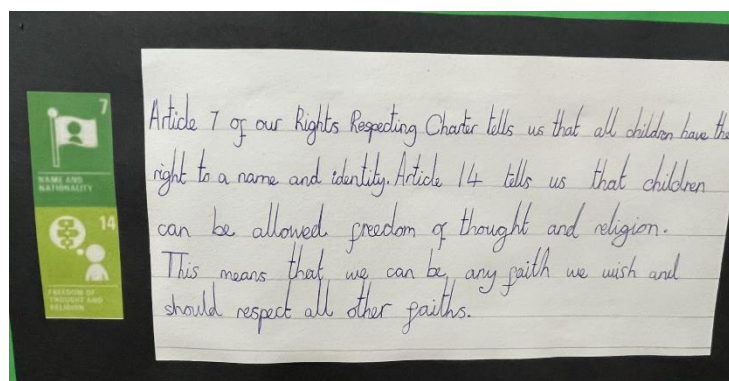 7
NAME AND
NATIONALITY
14
FREEDOM OF
THOUGHT AND
RELIGION
Article 7 of our Rights Respecting Charter tells us that all children have the
right to a name and identity. Article 14 tells us that children
can be allowed freedom of thought and religion.
This means that we can be any faith we wish and
should respect all other faiths.